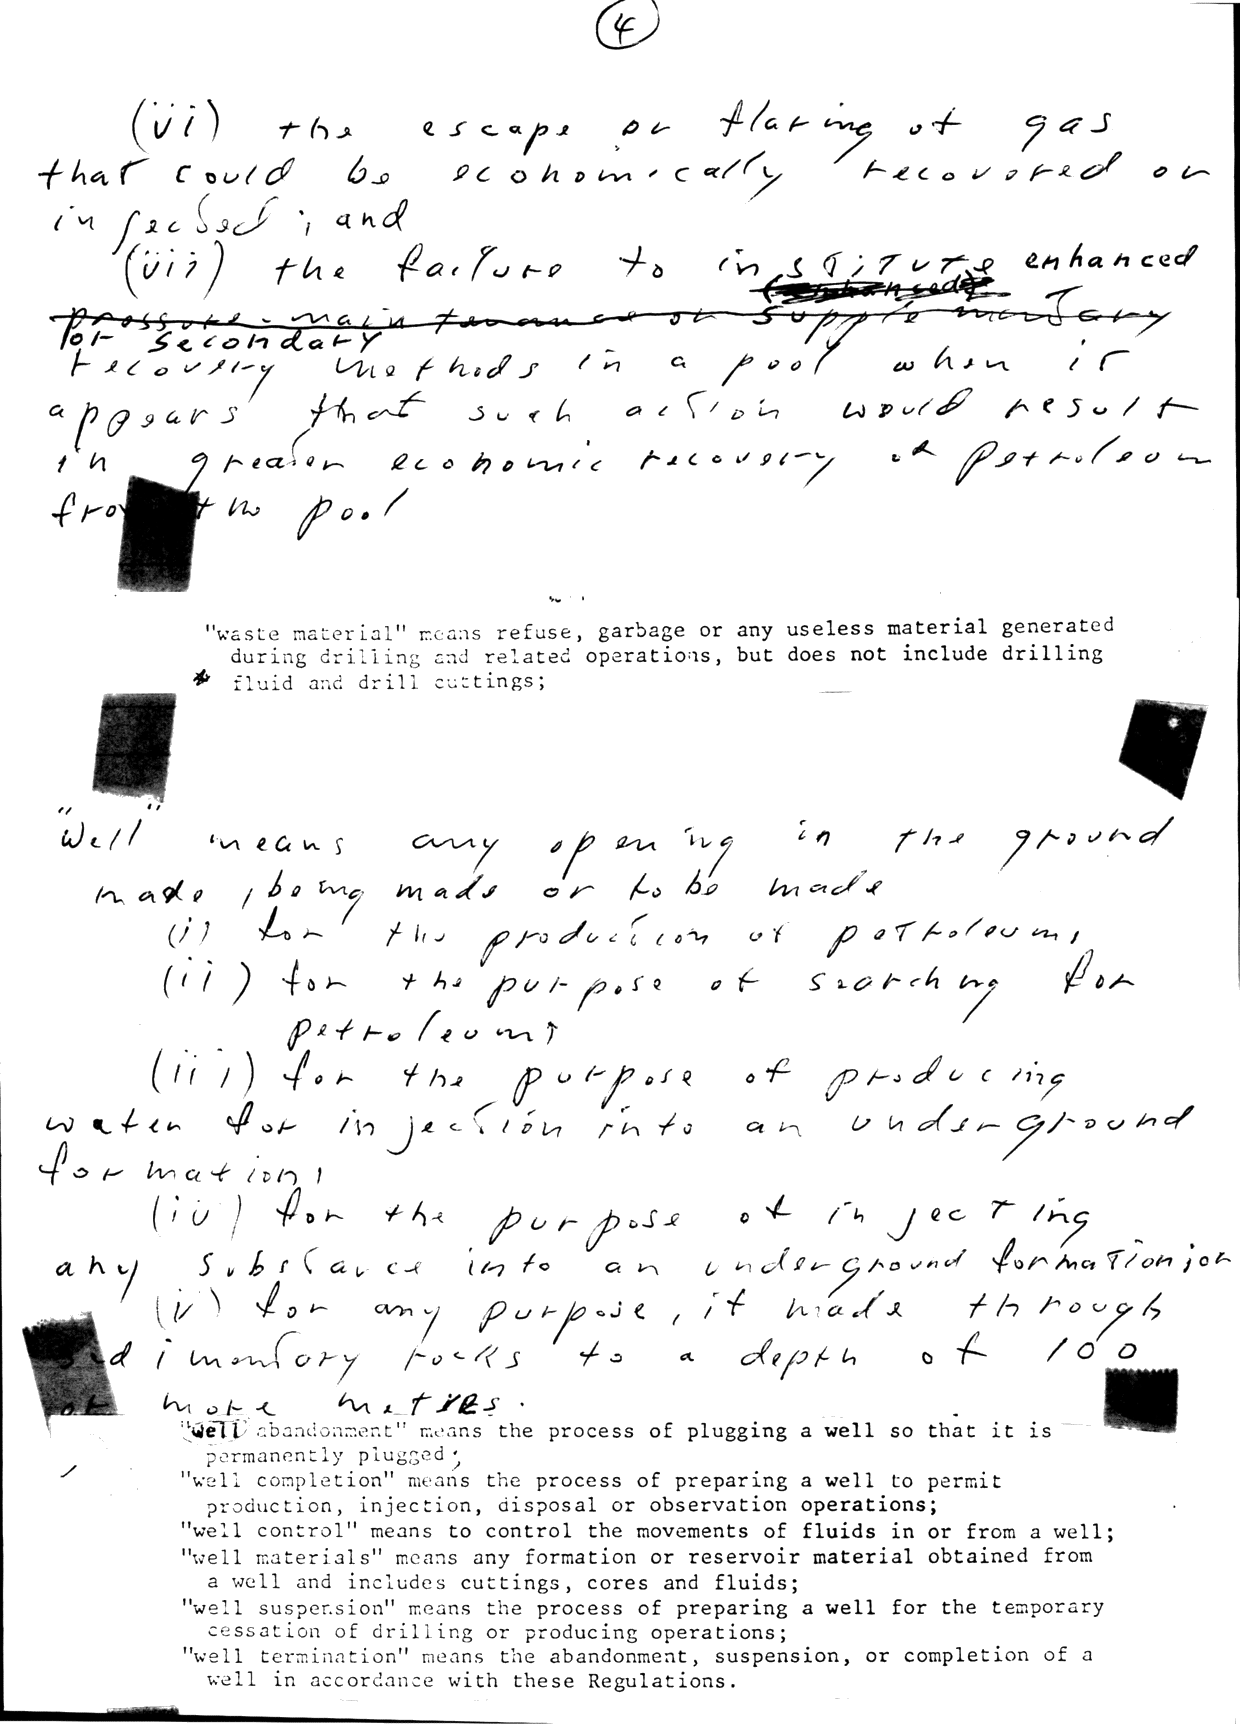 4
(vi) the escape or flaring of gas
that could be economically recovered or
injected; and
(vii) the failure to institute enhanced
(enhanced)
pressure-maintenance or supplementary
or secondary
recovery methods in a pool when it
appears that such action would result
in greater economic recovery of petroleum
from the pool
"waste material" means refuse, garbage or any useless material generated
during drilling and related operations, but does not include drilling
* fluid and drill cuttings;
"Well" means any opening in the ground
made, being made or to be made
(i) for the production of petroleum,
(ii) for the purpose of searching for
petroleum,
(iii) for the purpose of producing
water for injection into an underground
formation,
(iv) for the purpose of injecting
any substance into an underground formation; or
(v) for any purpose, if made through
sedimentary rocks to a depth of 100
or more metres.
"well abandonment" means the process of plugging a well so that it is
permanently plugged;
"well completion" means the process of preparing a well to permit
production, injection, disposal or observation operations;
"well control" means to control the movements of fluids in or from a well;
"well materials" means any formation or reservoir material obtained from
a well and includes cuttings, cores and fluids;
"well suspension" means the process of preparing a well for the temporary
cessation of drilling or producing operations;
"well termination" means the abandonment, suspension, or completion of a
well in accordance with these Regulations.